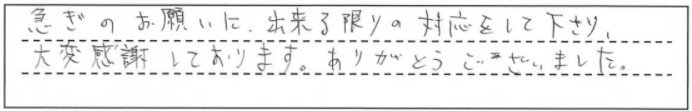 急ぎのお願いに、出来る限りの対応をして下さり、
大変感謝しております。ありがとうございました。